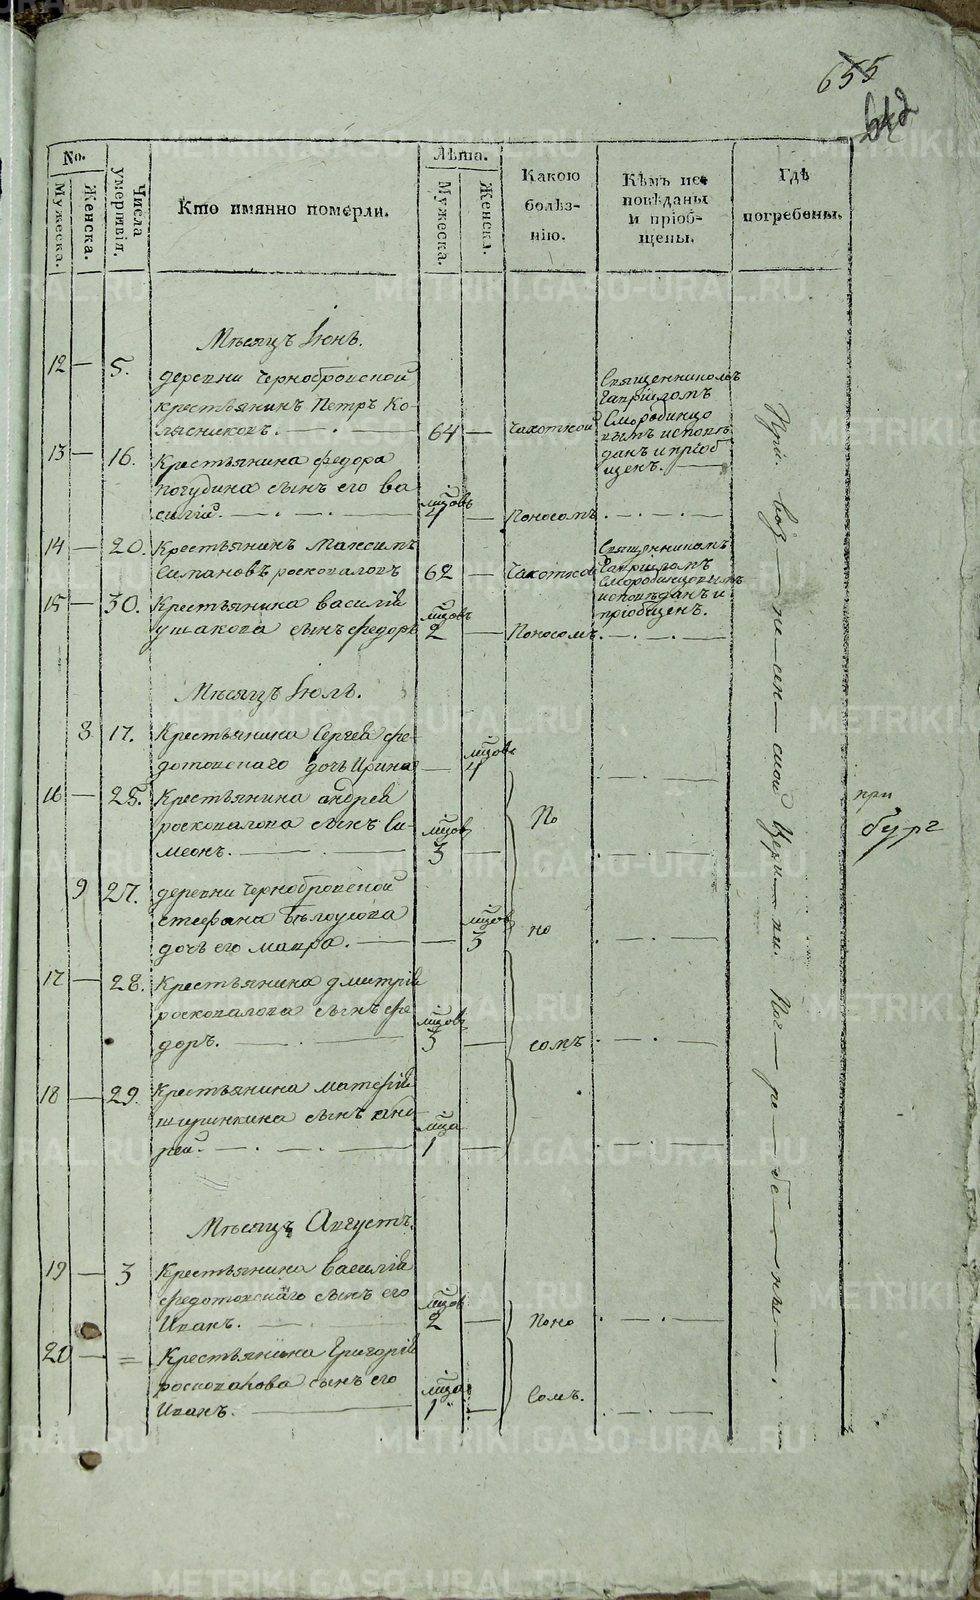 655
642
No.
Мужеска.
Женска.
Числа умершихъ.
Кто имянно померли.
Лѣта.
Мужеска.
Женска.
Какою
болѣз-
нію.
Кѣмъ ис-
повѣданы
и пріоб-
щены.
Гдѣ
погребены.
Мѣсяцъ Іюнь.
12 — 5. деревни Чернобровской
крестьянинъ Петръ Ко-
лясниковъ. 64 — Чахоткой
Священникомъ
Гавріиломъ
Смородинцо
вымъ исповѣ
данъ и пріоб
щенъ.
13 — 16. Крестьянина Федора
погудина сынъ его Ва
силій. мцовъ 4 — Поносомъ
14 — 20. Крестьянинъ Максимъ
Симановъ росковаловъ 62 — Чахоткой
Священникомъ
Гавріиломъ
Смородинцовымъ
исповѣданъ и
пріобщенъ.
15 — 30. Крестьянина Василія
ушакова сынъ Федоръ мцовъ 2 — Поносомъ.
Мѣсяцъ Іюль.
8 17. Крестьянина Сергея Фе-
дотовскаго дочь Ирина — мцовъ 4
16 — 25. Крестьянина андрея
росковалова сынъ Си-
меонъ. мцовъ 3 — По
9 27. деревни Чернобровской
стефана Бѣлоусова
дочь его мавра. — мцовъ 3 но
17 — 28. Крестьянина дмитрія
росковалова сынъ Фе
доръ. мцовъ 3 — сомъ
18 — 29. Крестьянина матфія
сынъ Анд-
рей. мца 1 —
Мѣсяцъ Августъ.
19 — 3 Крестьянина Василія
Федотовскаго сынъ его
Иванъ. мцов 2 — Поно
20 — = Крестьянина Григорія
росковалова сынъ его
Иванъ. мца 1 — сомъ.
При воз-не-сен-ской Церк-ви. Пог-ре-бе-ны.
при
METRIKI.GASO-URAL.RU